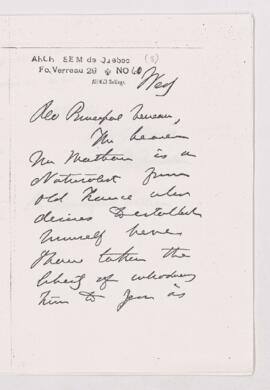 ARCH SEM de Québec (8)
Fo. Verreau 28 NO 60
Wed
Rev Principal Verreau,
The bearer
Mr Matthew is a
Naturalist from
Old France who
desires to establish
himself here
I have taken the
liberty of introducing
him to you as